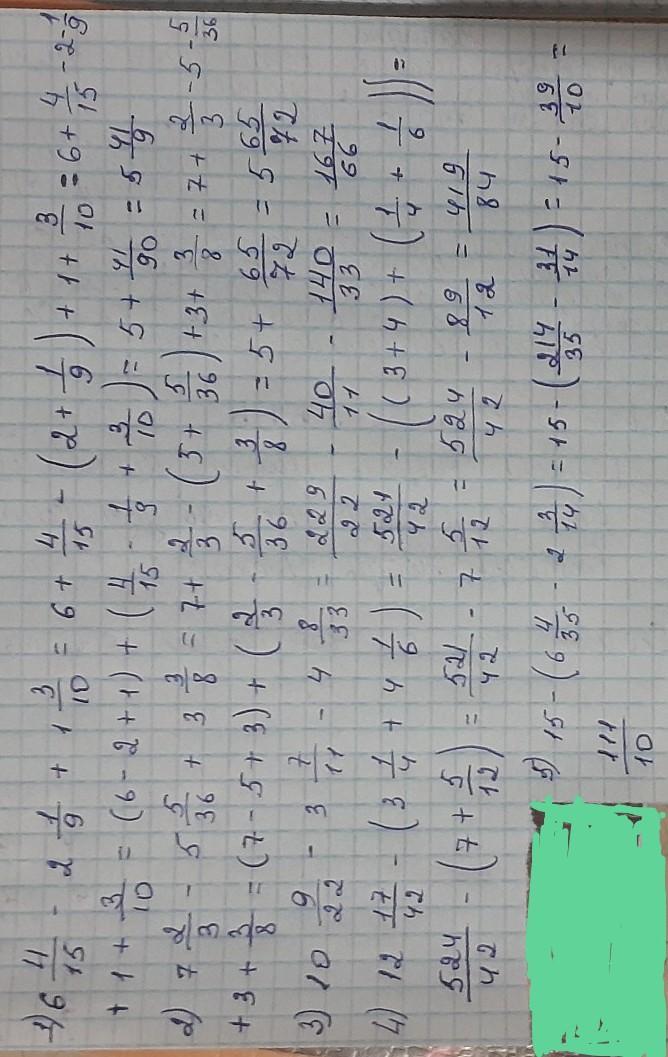 1) 6 4/15 - 2 1/9 + 1 3/10 = 6 + 4/15 - (2 + 1/9) + 1 + 3/10 = 6 + 4/15 - 2 - 1/9
+ 1 + 3/10 = (6 - 2 + 1) + (4/15 - 1/9 + 3/10) = 5 + 41/90 = 5 41/9
2) 7 2/3 - 5 5/36 + 3 3/8 = 7 + 2/3 - (5 + 5/36) + 3 + 3/8 = 7 + 2/3 - 5 - 5/36
+ 3 + 3/8 = (7 - 5 + 3) + (2/3 - 5/36 + 3/8) = 5 + 65/72 = 5 65/72
3) 10 9/22 - 3 7/11 - 4 8/33 = 229/22 - 40/11 - 140/33 = 167/66
4) 12 17/42 - (3 1/4 + 4 1/6) = 521/42 - ((3 + 4) + (1/4 + 1/6)) =
521/42 - (7 + 5/12) = 521/42 - 7 5/12 = 521/42 - 89/12 = 419/84
5) 15 - (6 4/35 - 2 3/14) = 15 - (214/35 - 31/14) = 15 - 39/10 =
111/10